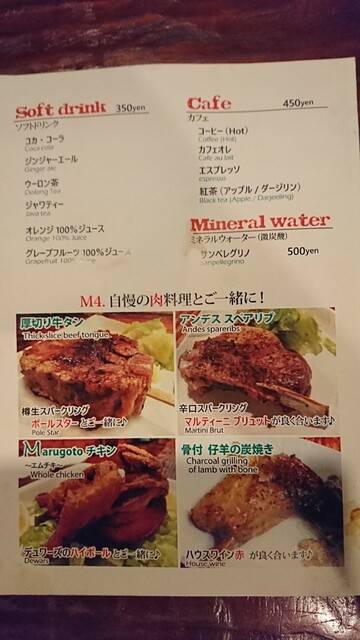 Soft drink 350yen
ソフトドリンク
コカ・コーラ
Coca cola
ジンジャーエール
Ginger ale
ウーロン茶
Oolong Tea
ジャワティー
Java tea
オレンジ 100％ジュース
Orange 100% Juice
グレープフルーツ 100％ジュース
Grapefruit 100% Juice
Cafe 450yen
カフェ
コーヒー (Hot)
Coffee (Hot)
カフェオレ
Cafe au lait
エスプレッソ
espresso
紅茶 (アップル / ダージリン)
Black tea (Apple / Darjeeling)
Mineral water
ミネラルウォーター (微炭酸)
サンペレグリノ 500yen
Sanpellegrino
M4. 自慢の肉料理とご一緒に！
厚切り牛タン
Thick slice beef tongue
樽生スパークリング
ポールスターとご一緒に♪
Pole Star
アンデス スペアリブ
Andes spareribs
辛口スパークリング
マルティーニ ブリュットが良く合います♪
Martini Brut
Marugoto チキン
~エムチキ~
Whole chicken
デュワーズのハイボールとご一緒に♪
Dewars
骨付 仔羊の炭焼き
Charcoal grilling
of lamb with bone
ハウスワイン赤 が良く合います♪
House wine